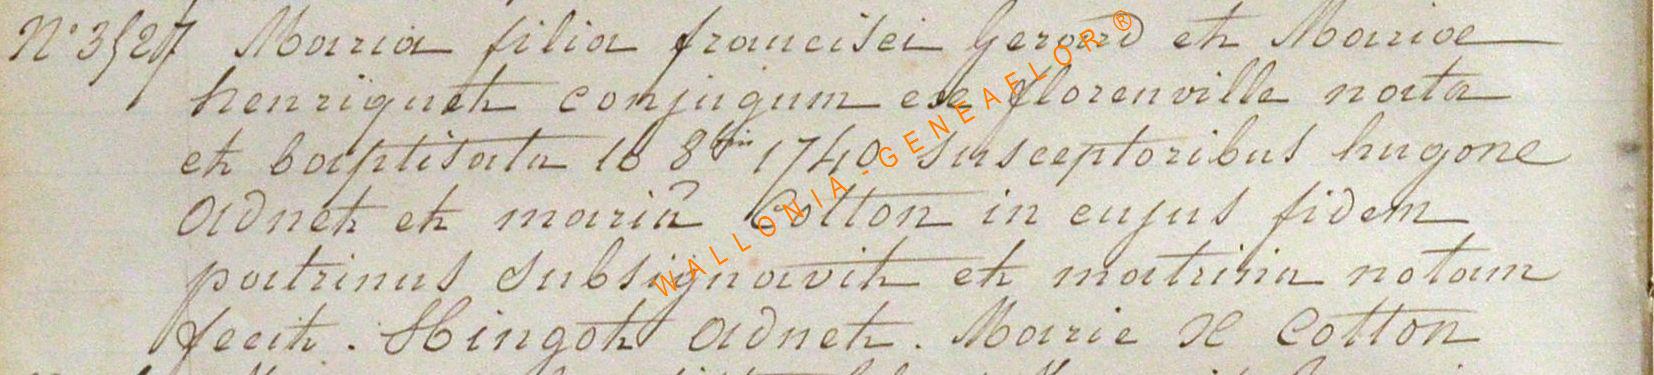 N° 3527 Maria filia francisci Gerard et Mariae
henriquet conjugum ex florenville nata
et baptisata 16 8bris 1740 susceptoribus hugone
Adnet et mariâ Cotton in cujus fidem
patrinus subsignavit et matrina notam
fecit. Hingot Adnet. Marie X Cotton
WALLONIA-GENEAFLOR®